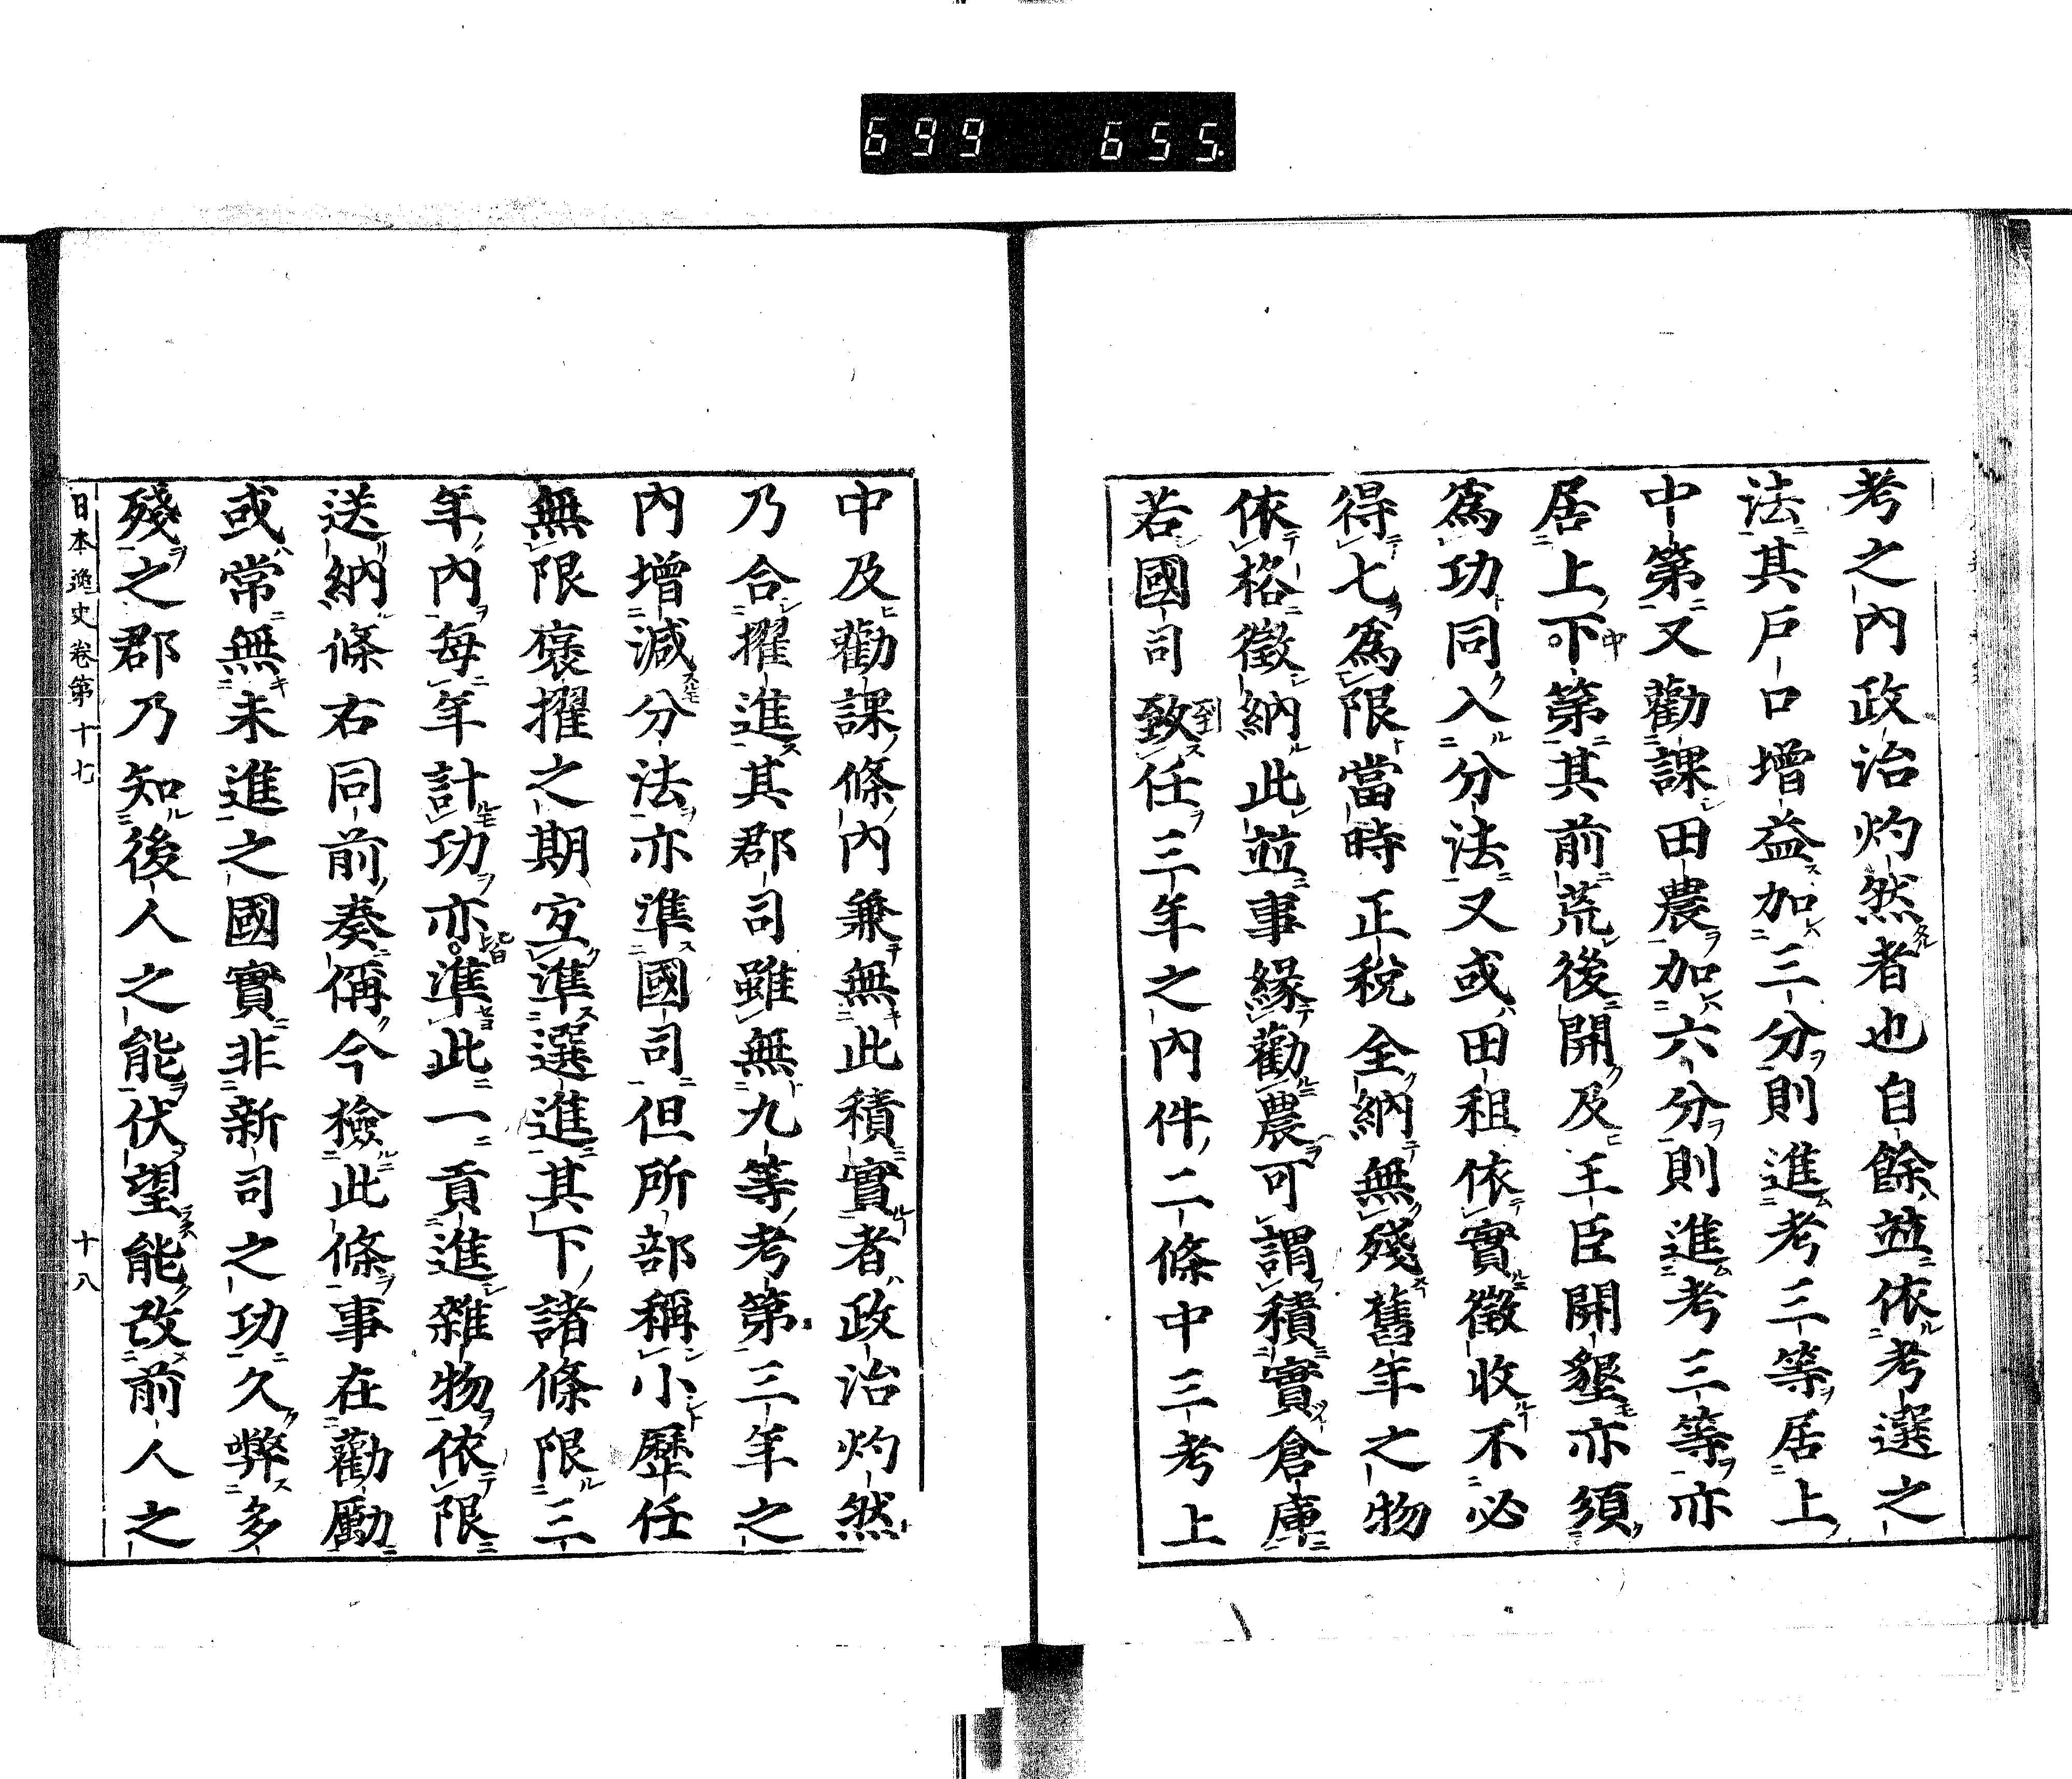 699 655.
考之內政治灼然者也自餘並依考選之
法其戶口增益加三分則進考三等居上
中第又勸課田農加六分則進考三等亦
居上下第其前荒後開及王臣開墾亦須
爲功同入分法又或田租依實徵收不必
得七爲限當時正稅全納無殘舊年之物
依格徵納此並事緣勸農可謂積實倉庫
若國司致任三年之內件二條中三考上
中及勸課條內兼無此積實者政治灼然
乃合擢進其郡司雖無九等考第三年之
內增減分法亦準國司但所部稱小歷任
無限褒擢之期宜準選進其下諸條限三
年內每年計功亦準此一貢進雜物依限
送納條右同前奏偁今檢此條事在勸勵
或常無未進之國實非新司之功久弊多
殘之郡乃知後人之能伏望能改前人之
日本逸史卷第十七 十八